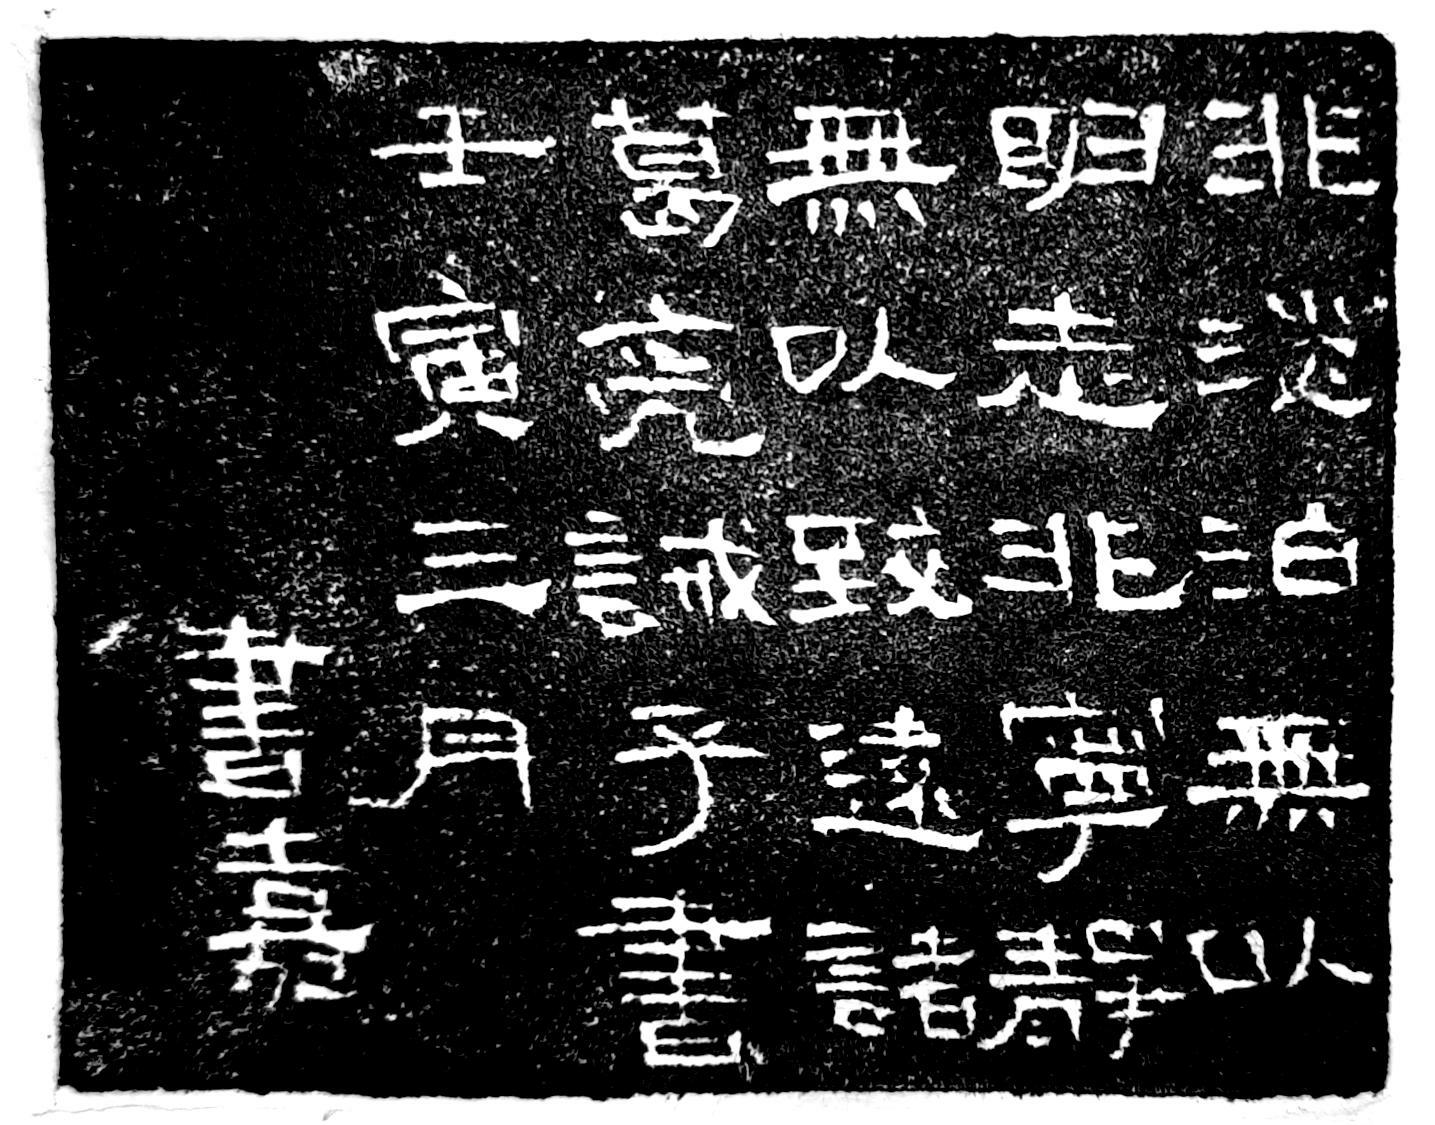 非淡泊無以
明志非寧靜
無以致遠諸
葛亮誡子書
壬寅三月
書嘉